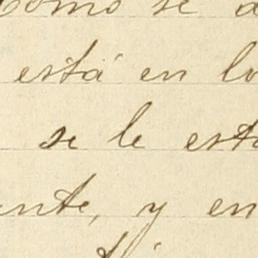 Como se a
está en lo
se le esta
ente, y en